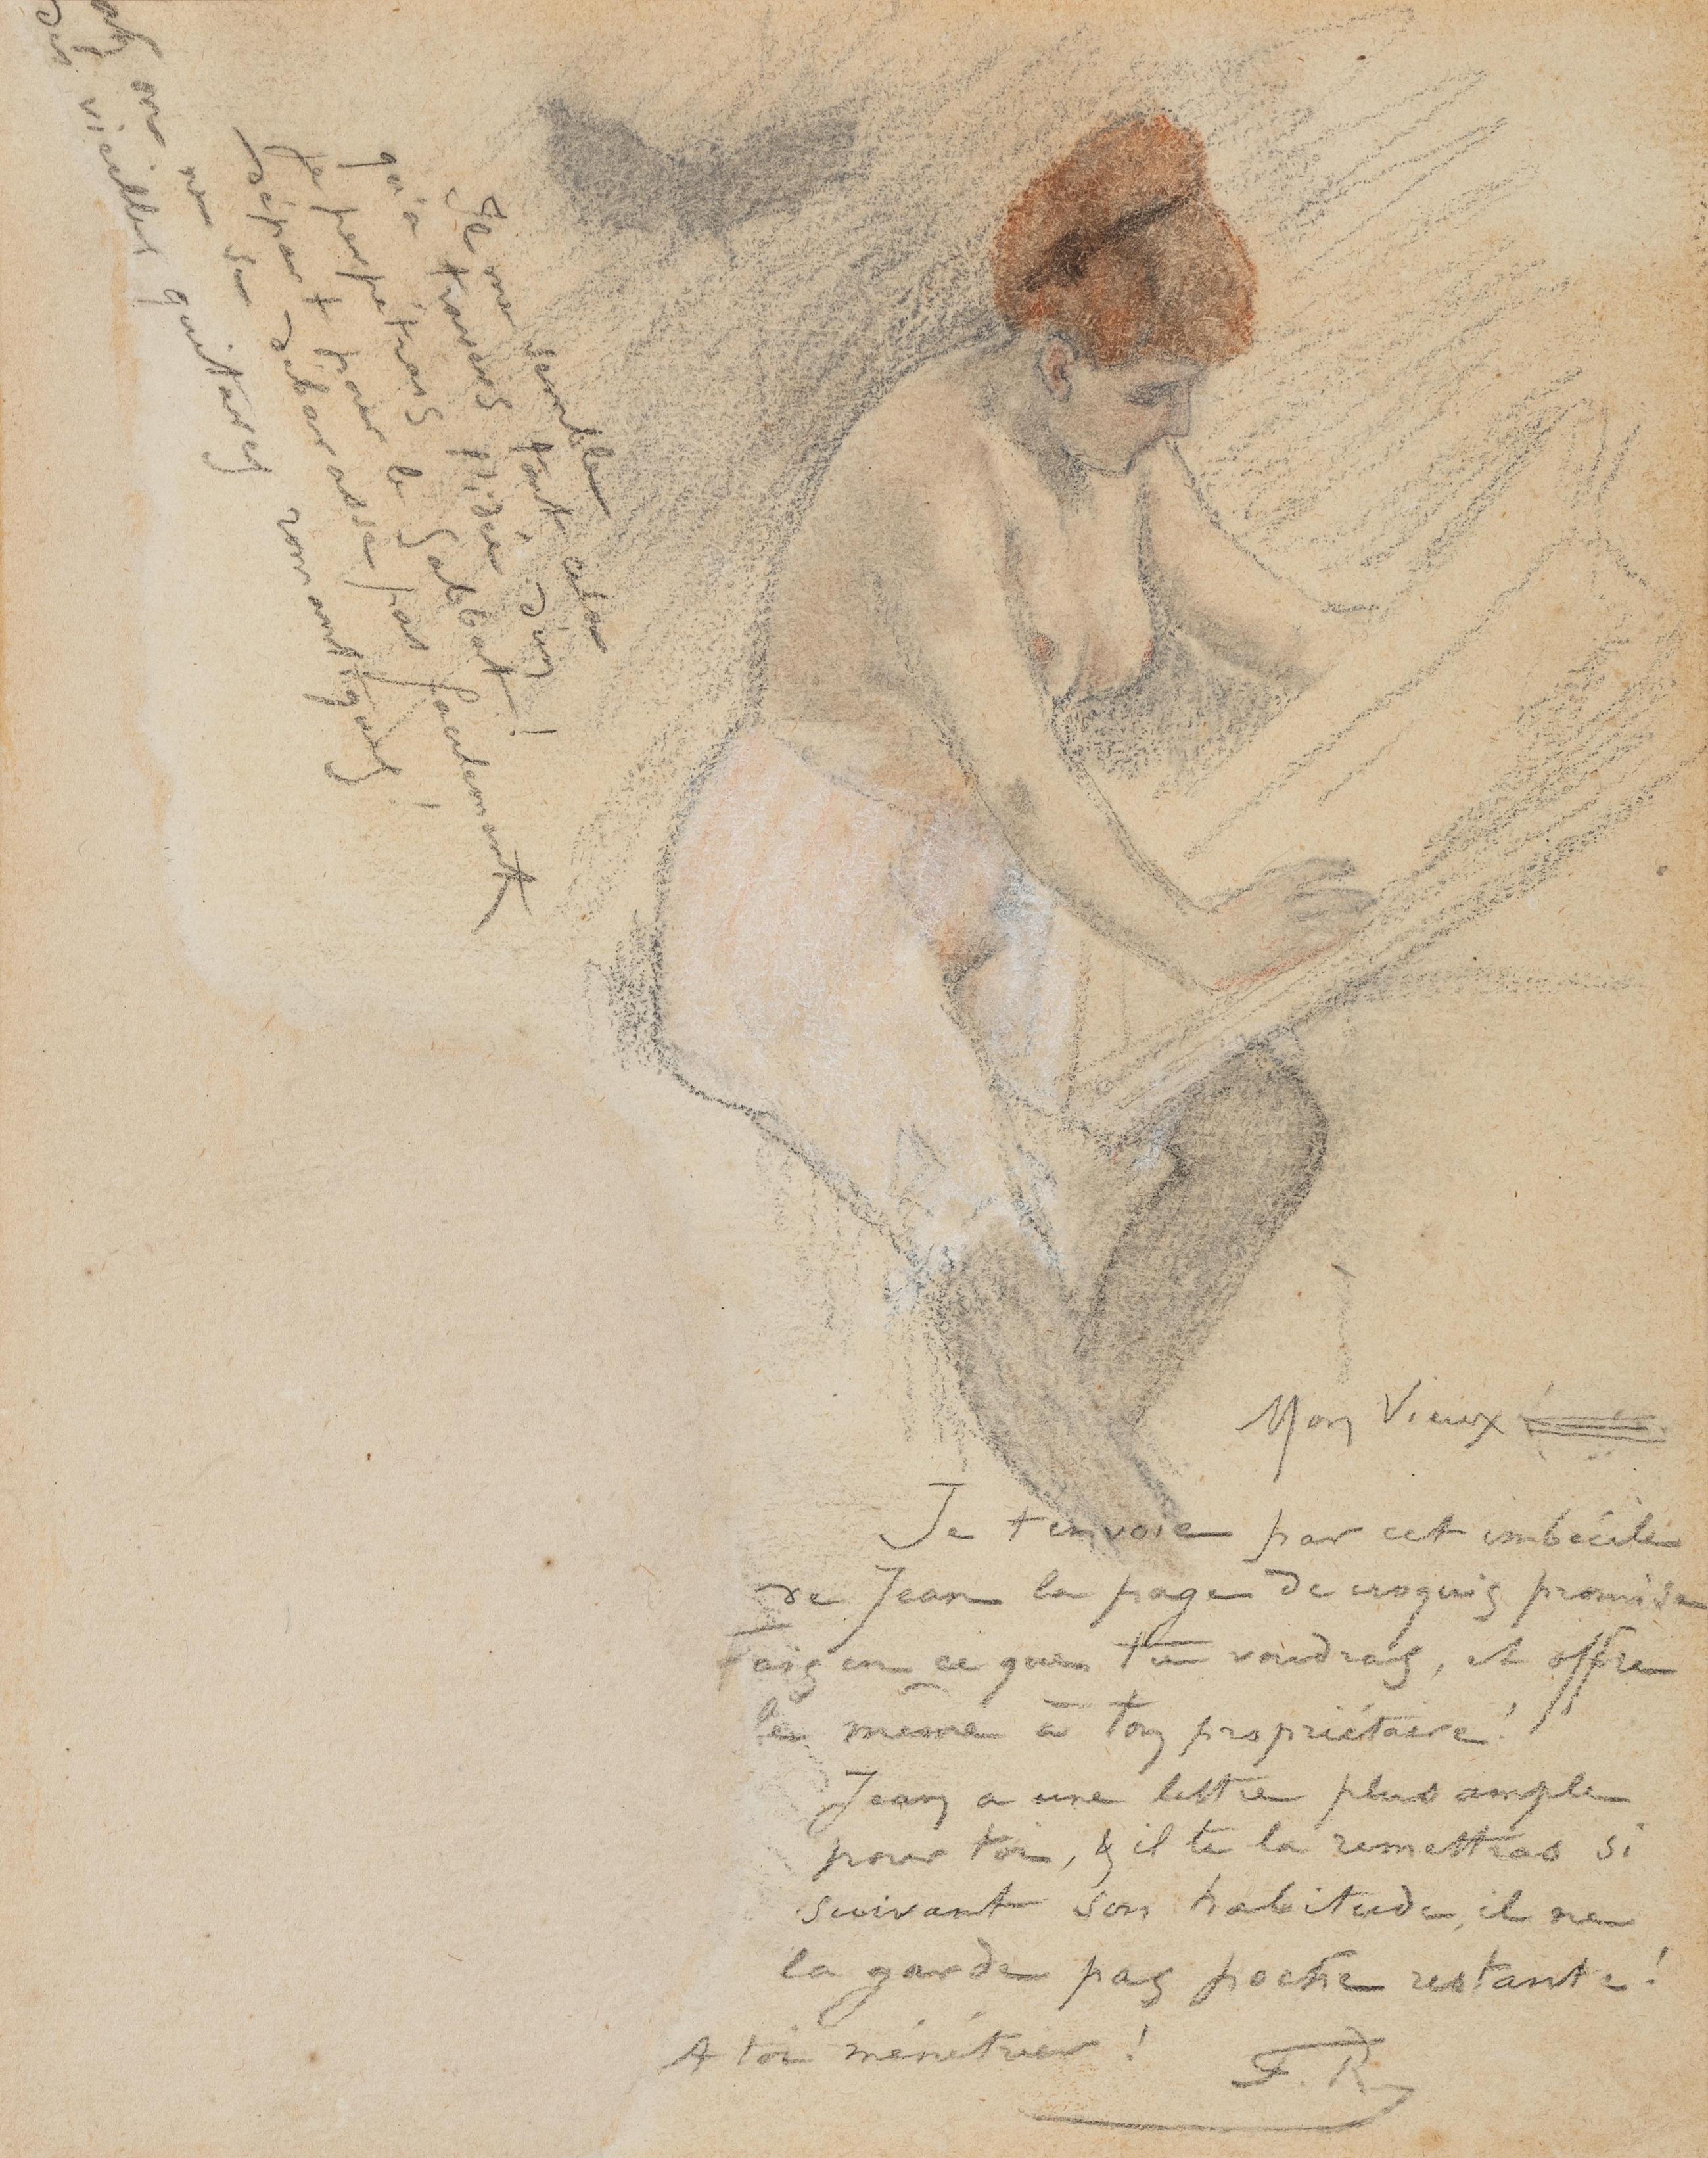 Il me semble tout cela
qu'à travers l'idée d'un
je perpétuais le Sabbat !
départ pour
débarrasse pas facilement
ah on ne se
des vieilles guitares romantiques !
Mon Vieux
Je t'envoie par cet imbécile
de Jean la page de croquis promise
fais en ce que tu voudras, et offre
le même à ton propriétaire !
Jean a une lettre plus ample
pour toi, & il te la remettras si
suivant son habitude, il ne
la garde pas poche restante !
A toi ménétrier !
F. R